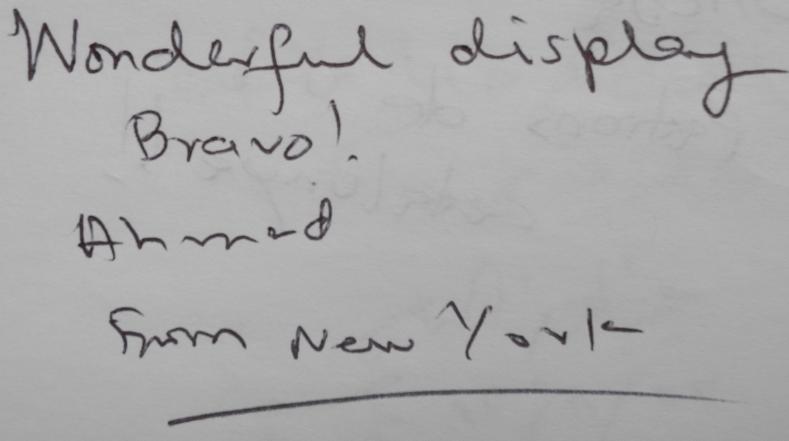 Wonderful display
Bravo!
Ahmed
From New York